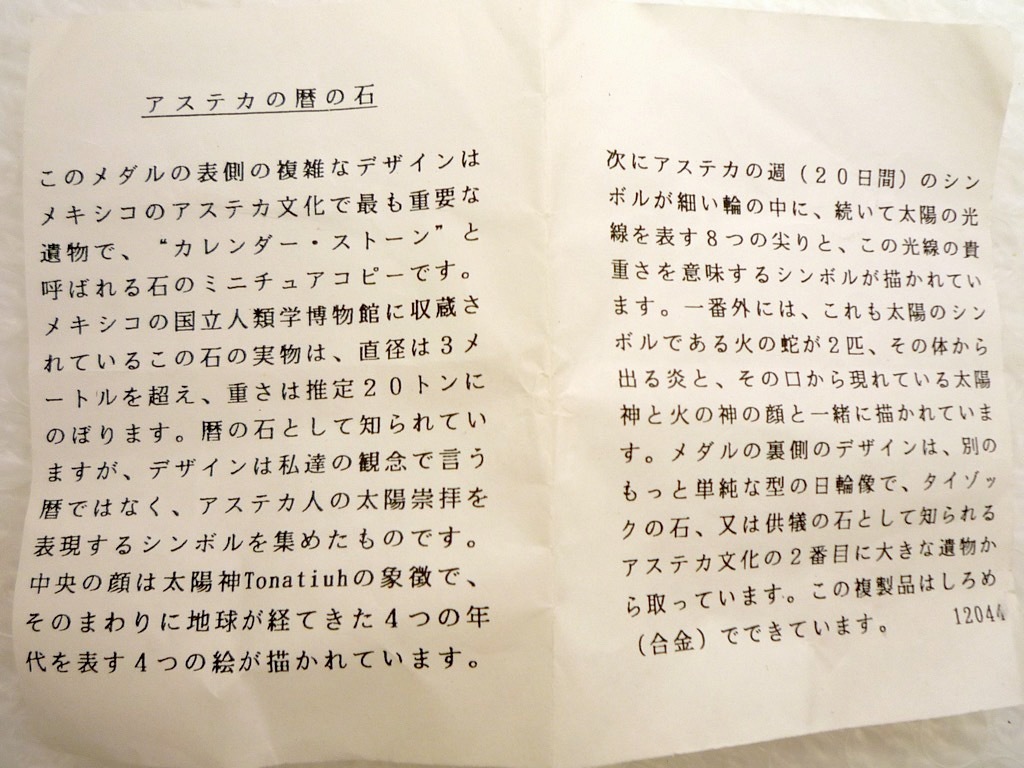 アステカの暦の石
このメダルの表側の複雑なデザインは
メキシコのアステカ文化で最も重要な
遺物で、“カレンダー・ストーン”と
呼ばれる石のミニチュアコピーです。
メキシコの国立人類学博物館に収蔵さ
れているこの石の実物は、直径は3メ
ートルを超え、重さは推定20トンに
のぼります。暦の石として知られてい
ますが、デザインは私達の観念で言う
暦ではなく、アステカ人の太陽崇拝を
表現するシンボルを集めたものです。
中央の顔は太陽神Tonatiuhの象徴で、
そのまわりに地球が経てきた4つの年
代を表す4つの絵が描かれています。
次にアステカの週（20日間）のシン
ボルが細い輪の中に、続いて太陽の光
線を表す8つの尖りと、この光線の貴
重さを意味するシンボルが描かれてい
ます。一番外には、これも太陽のシン
ボルである火の蛇が2匹、その体から
出る炎と、その口から現れている太陽
神と火の神の顔と一緒に描かれていま
す。メダルの裏側のデザインは、別の
もっと単純な型の日輪像で、タイゾッ
クの石、又は供犠の石として知られる
アステカ文化の2番目に大きな遺物か
ら取っています。この複製品はしろめ
（合金）でできています。 12044